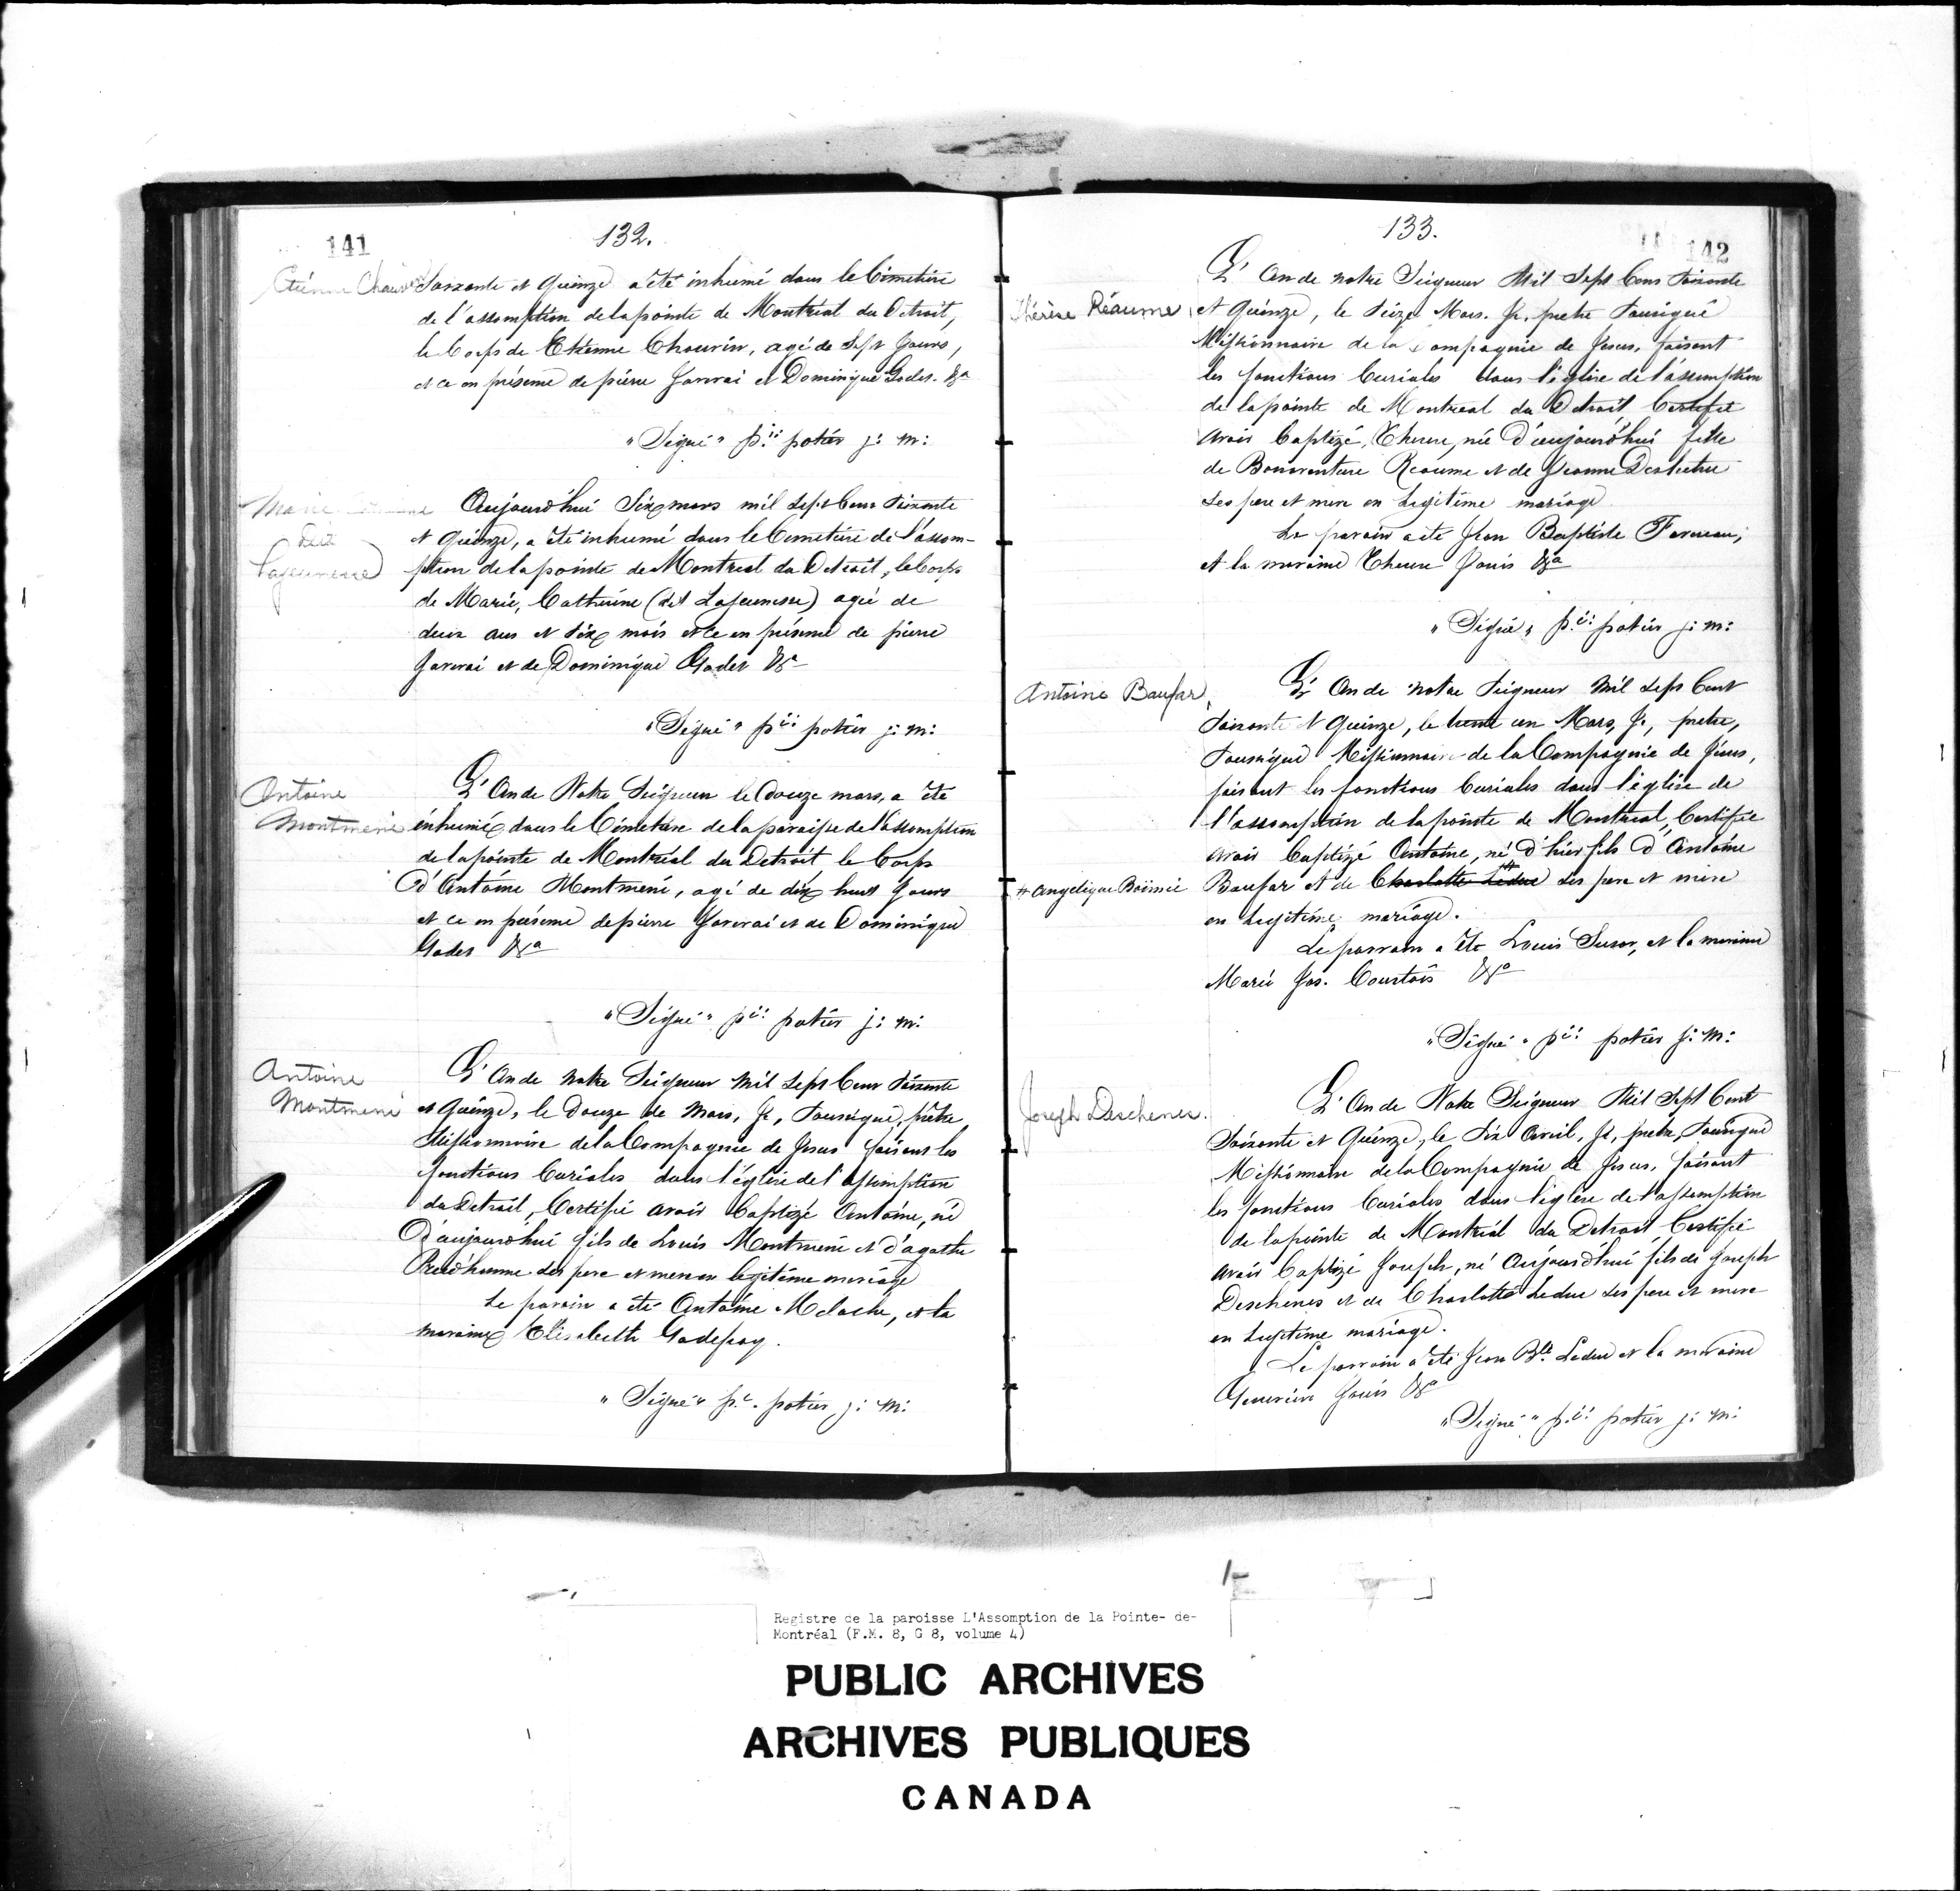 141
132.
Etienne Chauvin
Soixante et Quinze a été inhumé dans le Cimetiere
de l'assomption de la pointe de Montréal du Detroit,
le Corps de Etienne Chouvin, agé de Sept Jours,
et ce en présence de pierre Jarvrai et Dominique Godet. &a
"Signé" pre potier j: m:
Marie
dit
Lajeunesse
Aujourd'hui Six mars mil sept Cens Soixante
et Quinze, a été inhumé dans le Cimetiere de l'assom-
ption de la pointe de Montreal du Detroit, le Corps
de Marie, Catherine (dit Lajeunesse) agée de
deux ans et six mois et ce en présence de pierre
Jarvrai et de Dominique Godet &a
"Signé" pre potier j: m:
Antoine
Montmeni
L'An de Notre Seigneur le douze mars, a été
inhumé dans le Cémetiere de la paraisse de l'assomption
de la pointe de Montréal du Detroit le Corps
d'Antoine Montmeni, agé de dix huit Jours
et ce en présence de pierre Jarvrai et de Dominique
Godet &a
"Signé" pre potier j: m:
Antoine
Montmeni
L'An de notre Seigneur mil Sept Cens Soixante
et Quinze, le Douze de Mars, Je, Soussigné, prêtre
Missionnaire de la Compagnie de Jesus faisant les
fonctions Curiales dans l'église de l'assomption
du Detroit, Certifié avoir Baptizé Antoine, né
D'aujourd'hui fils de Louis Montmeni et d'agathe
Prud'homme ses pere et mere en legitime mariage
Le parain a été Antoine Meloche, et la
maraine Elisabeth Godefroy.
"Signé" pre. potier j: m:
133.
142
Thérèse Réaume
L'An de notre Seigneur Mil Sept Cens Soixante
et Quinze, le Seize Mars. Je, pretre Soussigné
Missionnaire de la Compagnie de Jesus, faisant
les fonctions Curiales dans l'église de l'assomption
de la pointe de Montreal du Detroit, Certifié
avoir baptizé, Therese, née D'aujourd'hui fille
de Bonaventure Reaume et de Jeanne Deshetre
ses pere et mere en Legitime mariage
Le parain a été Jean Baptiste Farneau,
et la maraine Therese Jouis &a
"Signé" pre: potier j: m:
Antoine Baufar
L'An de notre Seigneur Mil Sept Cent
Soixante et Quinze, le trente un Mars, Je, pretre,
Soussigné Missionnaire de la Compagnie de Jésus,
faisant les fonctions Curiales dans l'église de
l'assomption de la pointe de Montreal, Certifié
avoir baptizé Antoine, né d'hier fils d'Antoine
# Angelique Boïmié
Baufar et de Charlotte Leduc # ses pere et mere
en Legitime mariage.
Le parrain a été Louis Suzor, et la maraine
Marie Jos. Courtois &a
"Signé" pre: potier j: m:
Joseph Deschenes.
L'An de Notre Seigneur Mil Sept Cent
Soixante et Quinze, le Six Avril, Je, pretre, Soussigné
Missionnaire de la Compagnie de Jesus, faisant
les fonctions Curiales dans l'église de l'assomption
de la pointe de Montréal du Detroit Certifié
avoir baptizé Joseph, né Aujourd'hui fils de Joseph
Deschenes et de Charlotte Leduc ses pere et mere
en Legitime mariage.
Le parrain a été Jean Bte. Leduc et la maraine
Jouis &a
"Signé" pre: potier j: m:
Registre de la paroisse L'Assomption de la Pointe- de-
Montréal (F.M. 8, G 8, volume 4)
PUBLIC ARCHIVES
ARCHIVES PUBLIQUES
CANADA